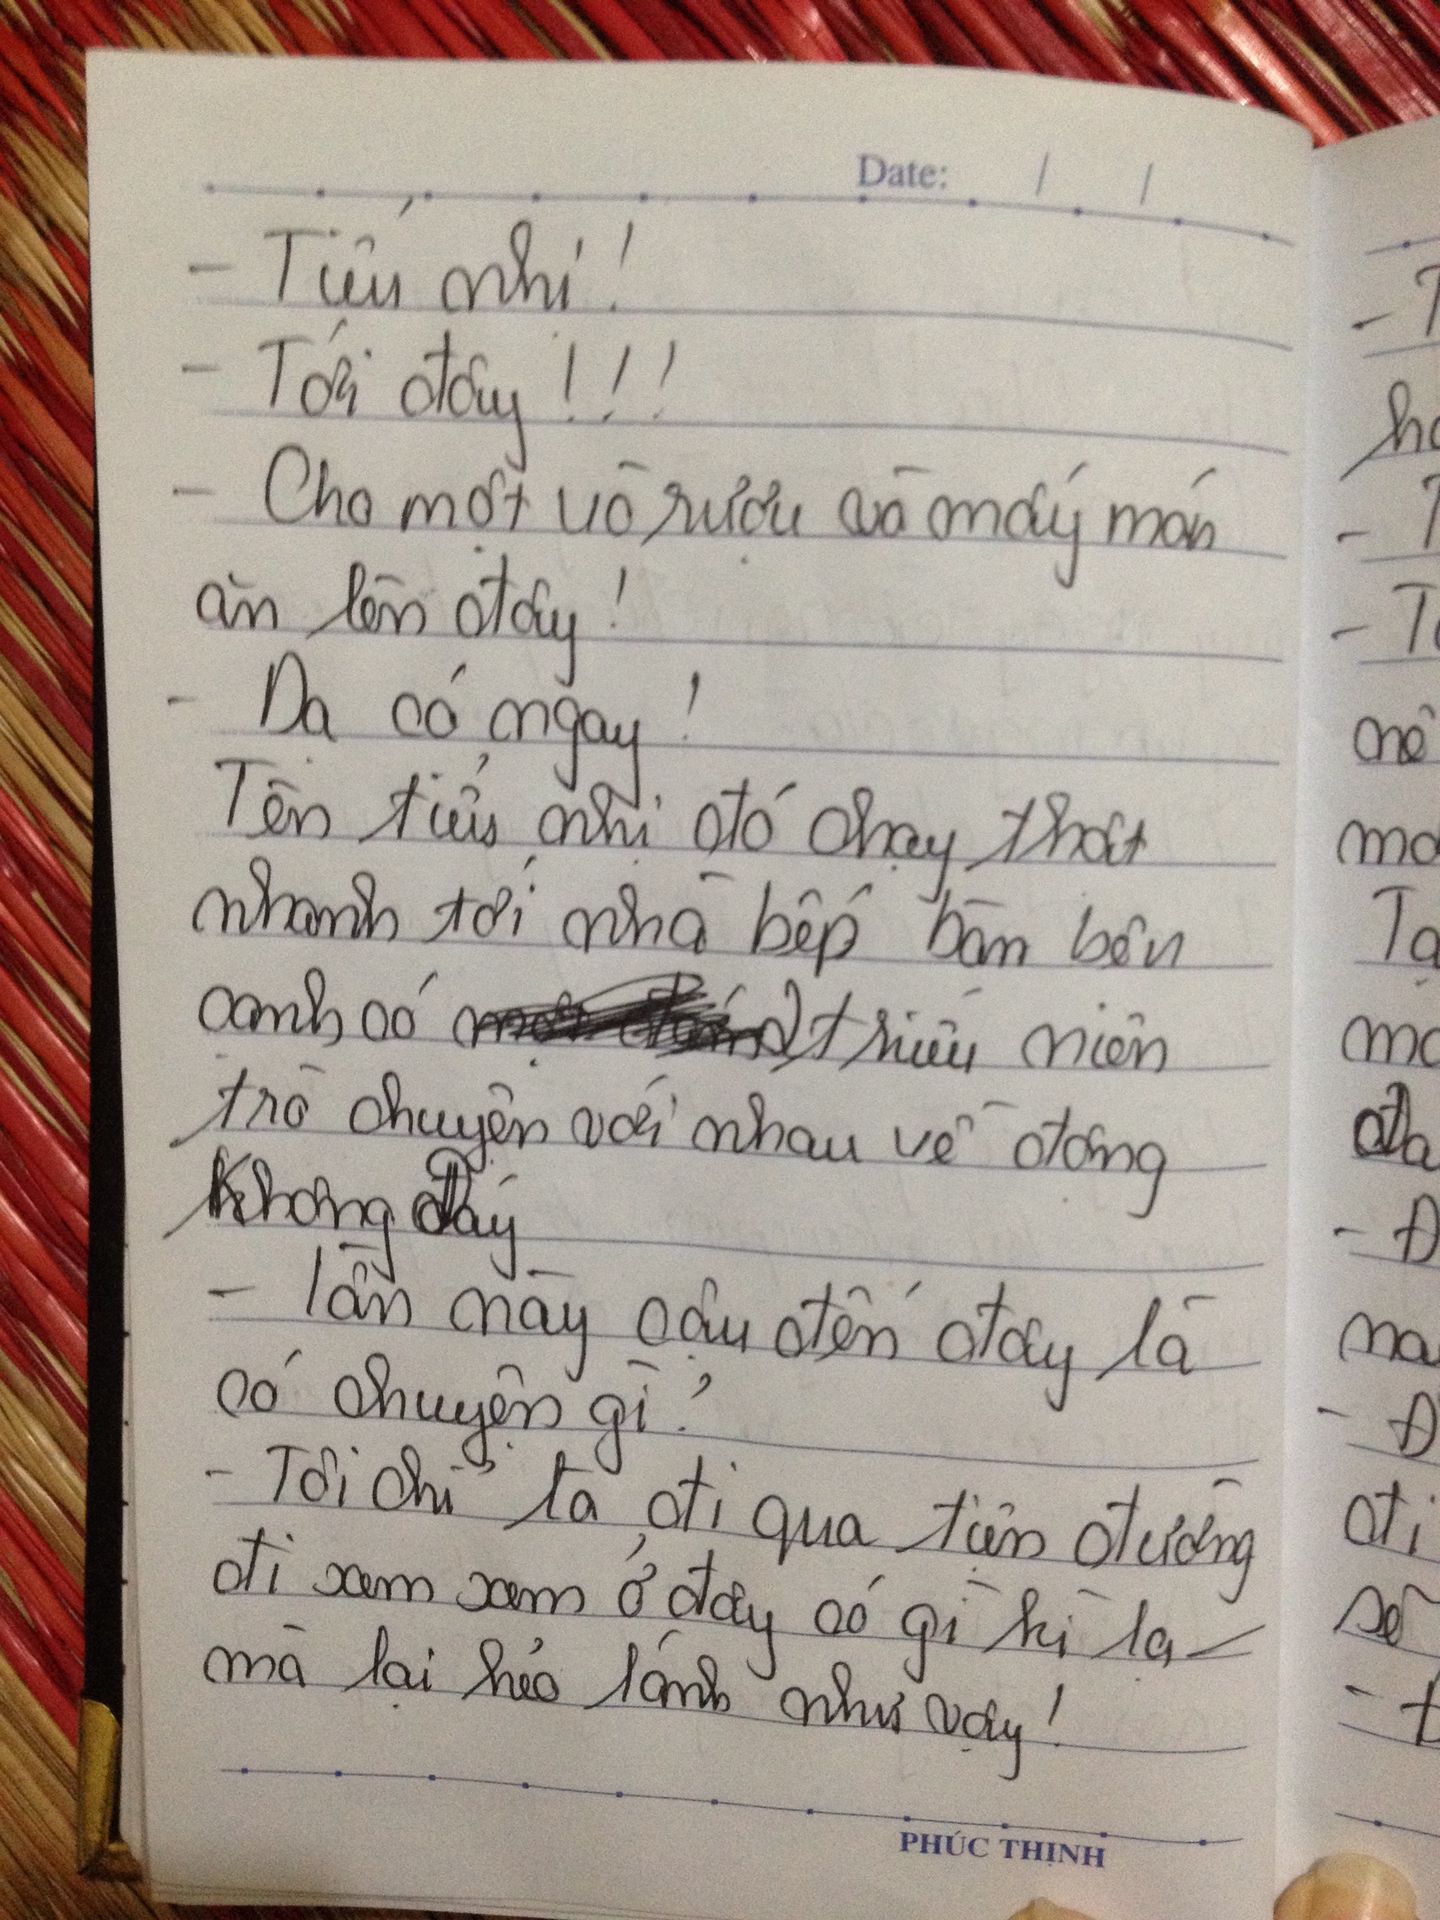 Date: / /
- Tiểu nhi!
- Tới đây!!!
- Cho một vò rượu và mấy món
ăn lên đây!
- Dạ có ngay!
Tên tiểu nhị đó chạy thật
nhanh tới nhà bếp bàn bên
cạnh có 2 thiếu niên
trò chuyện với nhau về động
không đáy
- lần này cậu đến đây là
có chuyện gì?
- Tôi chỉ là đi qua tiện đường
đi xem xem ở đây có gì kì lạ
mà lại héo lánh như vậy!
PHÚC THỊNH